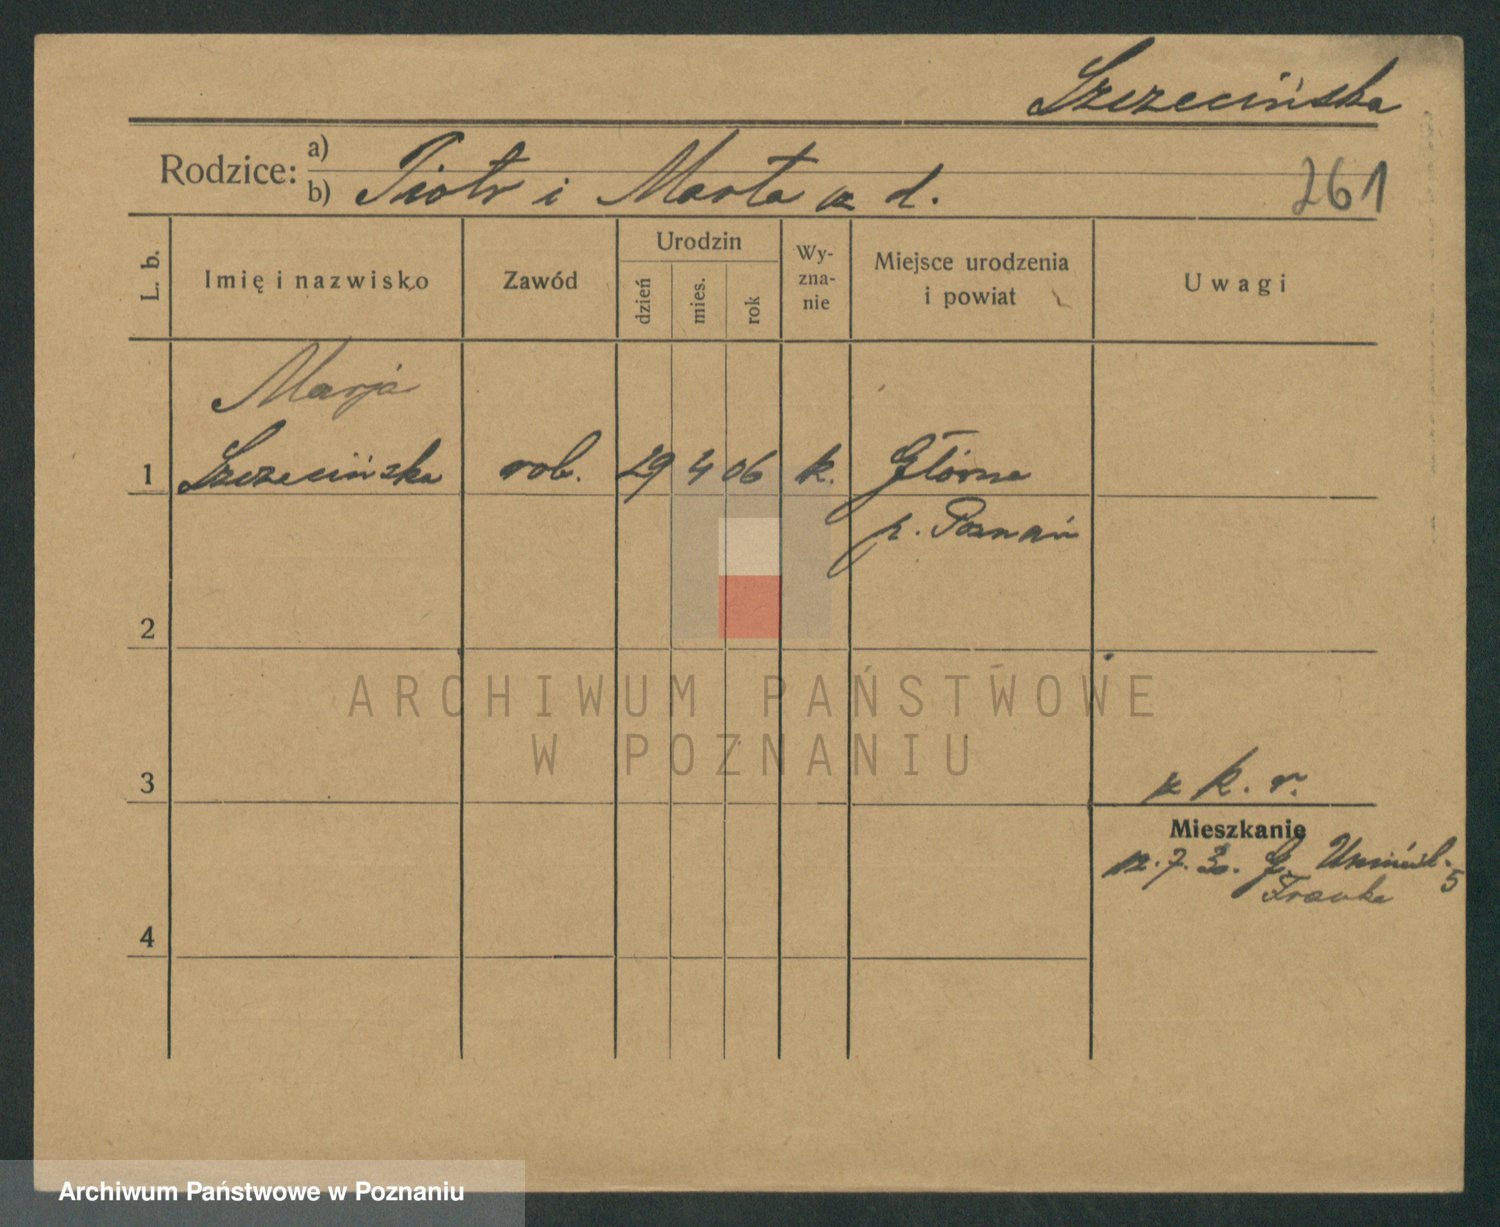 Szczecińska
Rodzice: a)
b) Piotr i Marta z d.
261
L. b.
Imię i nazwisko
Zawód
Urodzin
dzień
mies.
rok
Wy-
zna-
nie
Miejsce urodzenia
i powiat
Uwagi
Marja
1 Szczecińska rob. 29 4 06 k. Główna
p. Poznań
2
ARCHIWUM PAŃSTWOWE
W POZNANIU
3
k. r.
Mieszkanie
12. 7. 30. G.
5
Franka
4
Archiwum Państwowe w Poznaniu